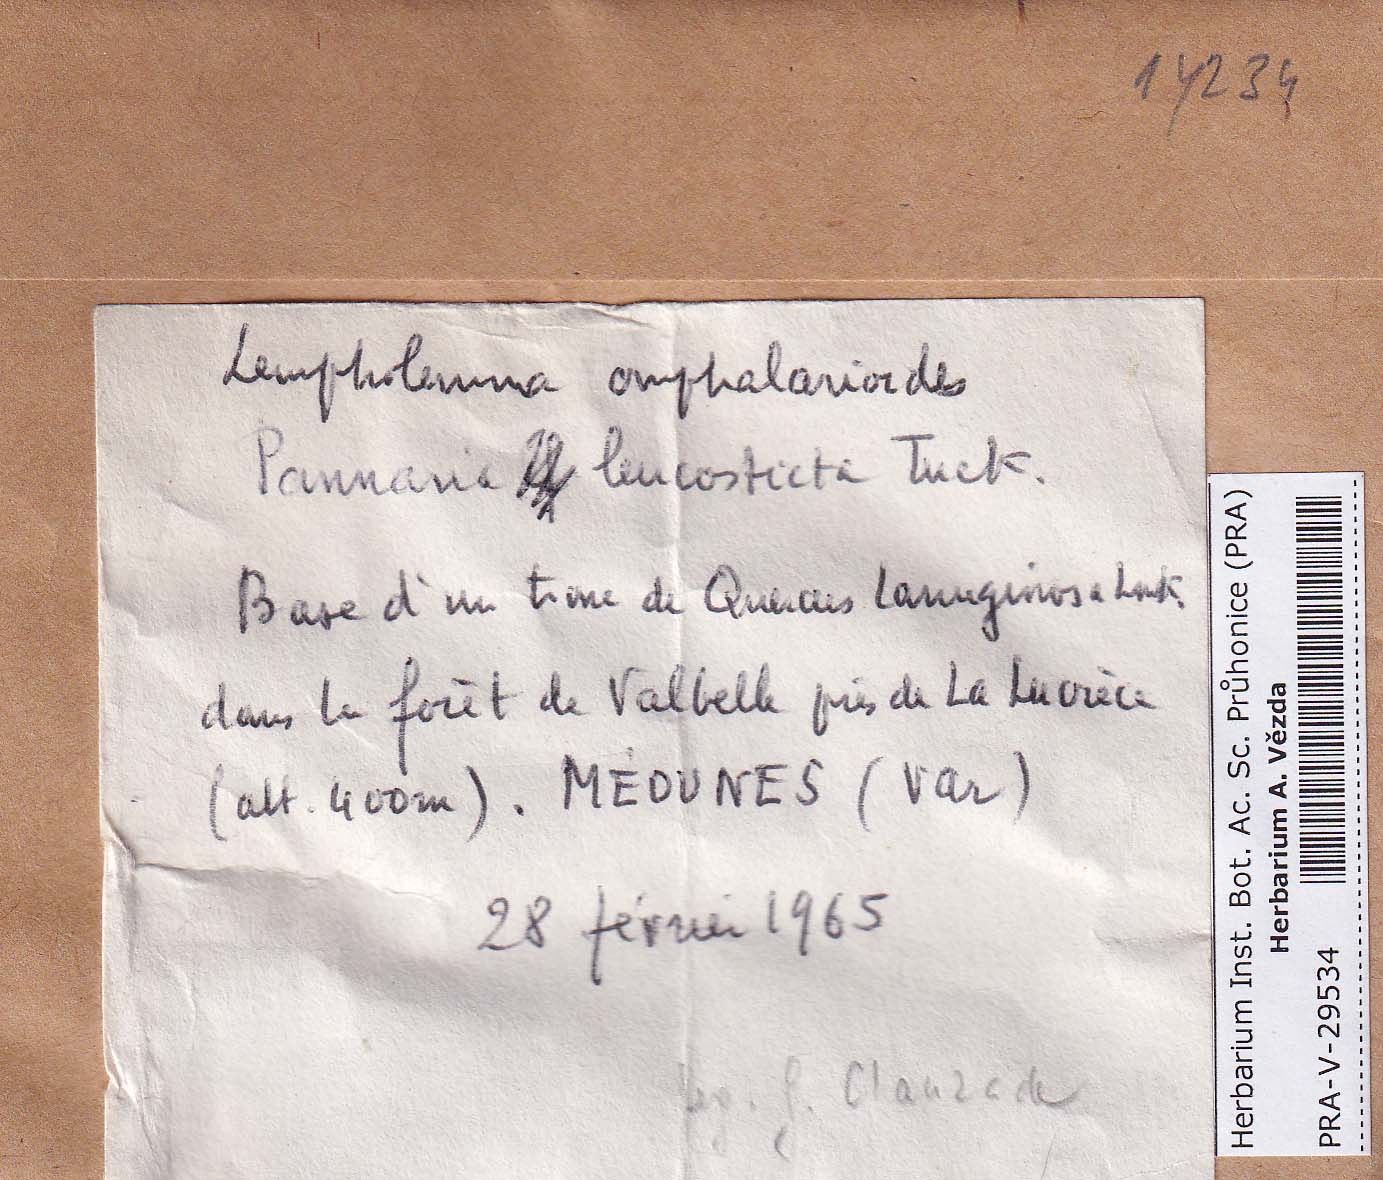 14234
Lempholemma omphalarioides
Pannaria leucosticta Tuck.
Base d'un tronc de Quercus Lanuginosa Lmk.
dans la forêt de Valbelle près de La Lucrèce
(alt. 400m). MÉOUNES (Var)
28 février 1965
leg. G. Clauzade
Herbarium Inst. Bot. Ac. Sc. Průhonice (PRA)
Herbarium A. Vězda
PRA-V-29534